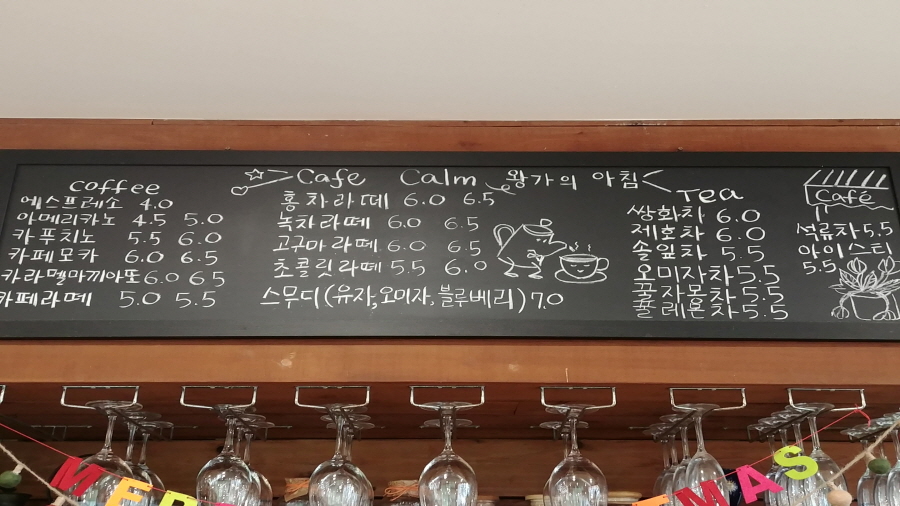 Cafe Calm 왕가의 아침
Coffee
에스프레소 4.0
아메리카노 4.5 5.0
카푸치노 5.5 6.0
카페모카 6.0 6.5
카라멜마끼아또 6.0 6.5
카페라떼 5.0 5.5
홍차라떼 6.0 6.5
녹차라떼 6.0 6.5
고구마라떼 6.0 6.5
초콜릿라떼 5.5 6.0
스무디(유자,오미자,블루베리) 7.0
Tea
쌍화차 6.0
제호차 6.0
솔잎차 5.5
오미자차 5.5
꿀자몽차 5.5
꿀레몬차 5.5
Café
석류차 5.5
아이스티
5.5
MER
MAS